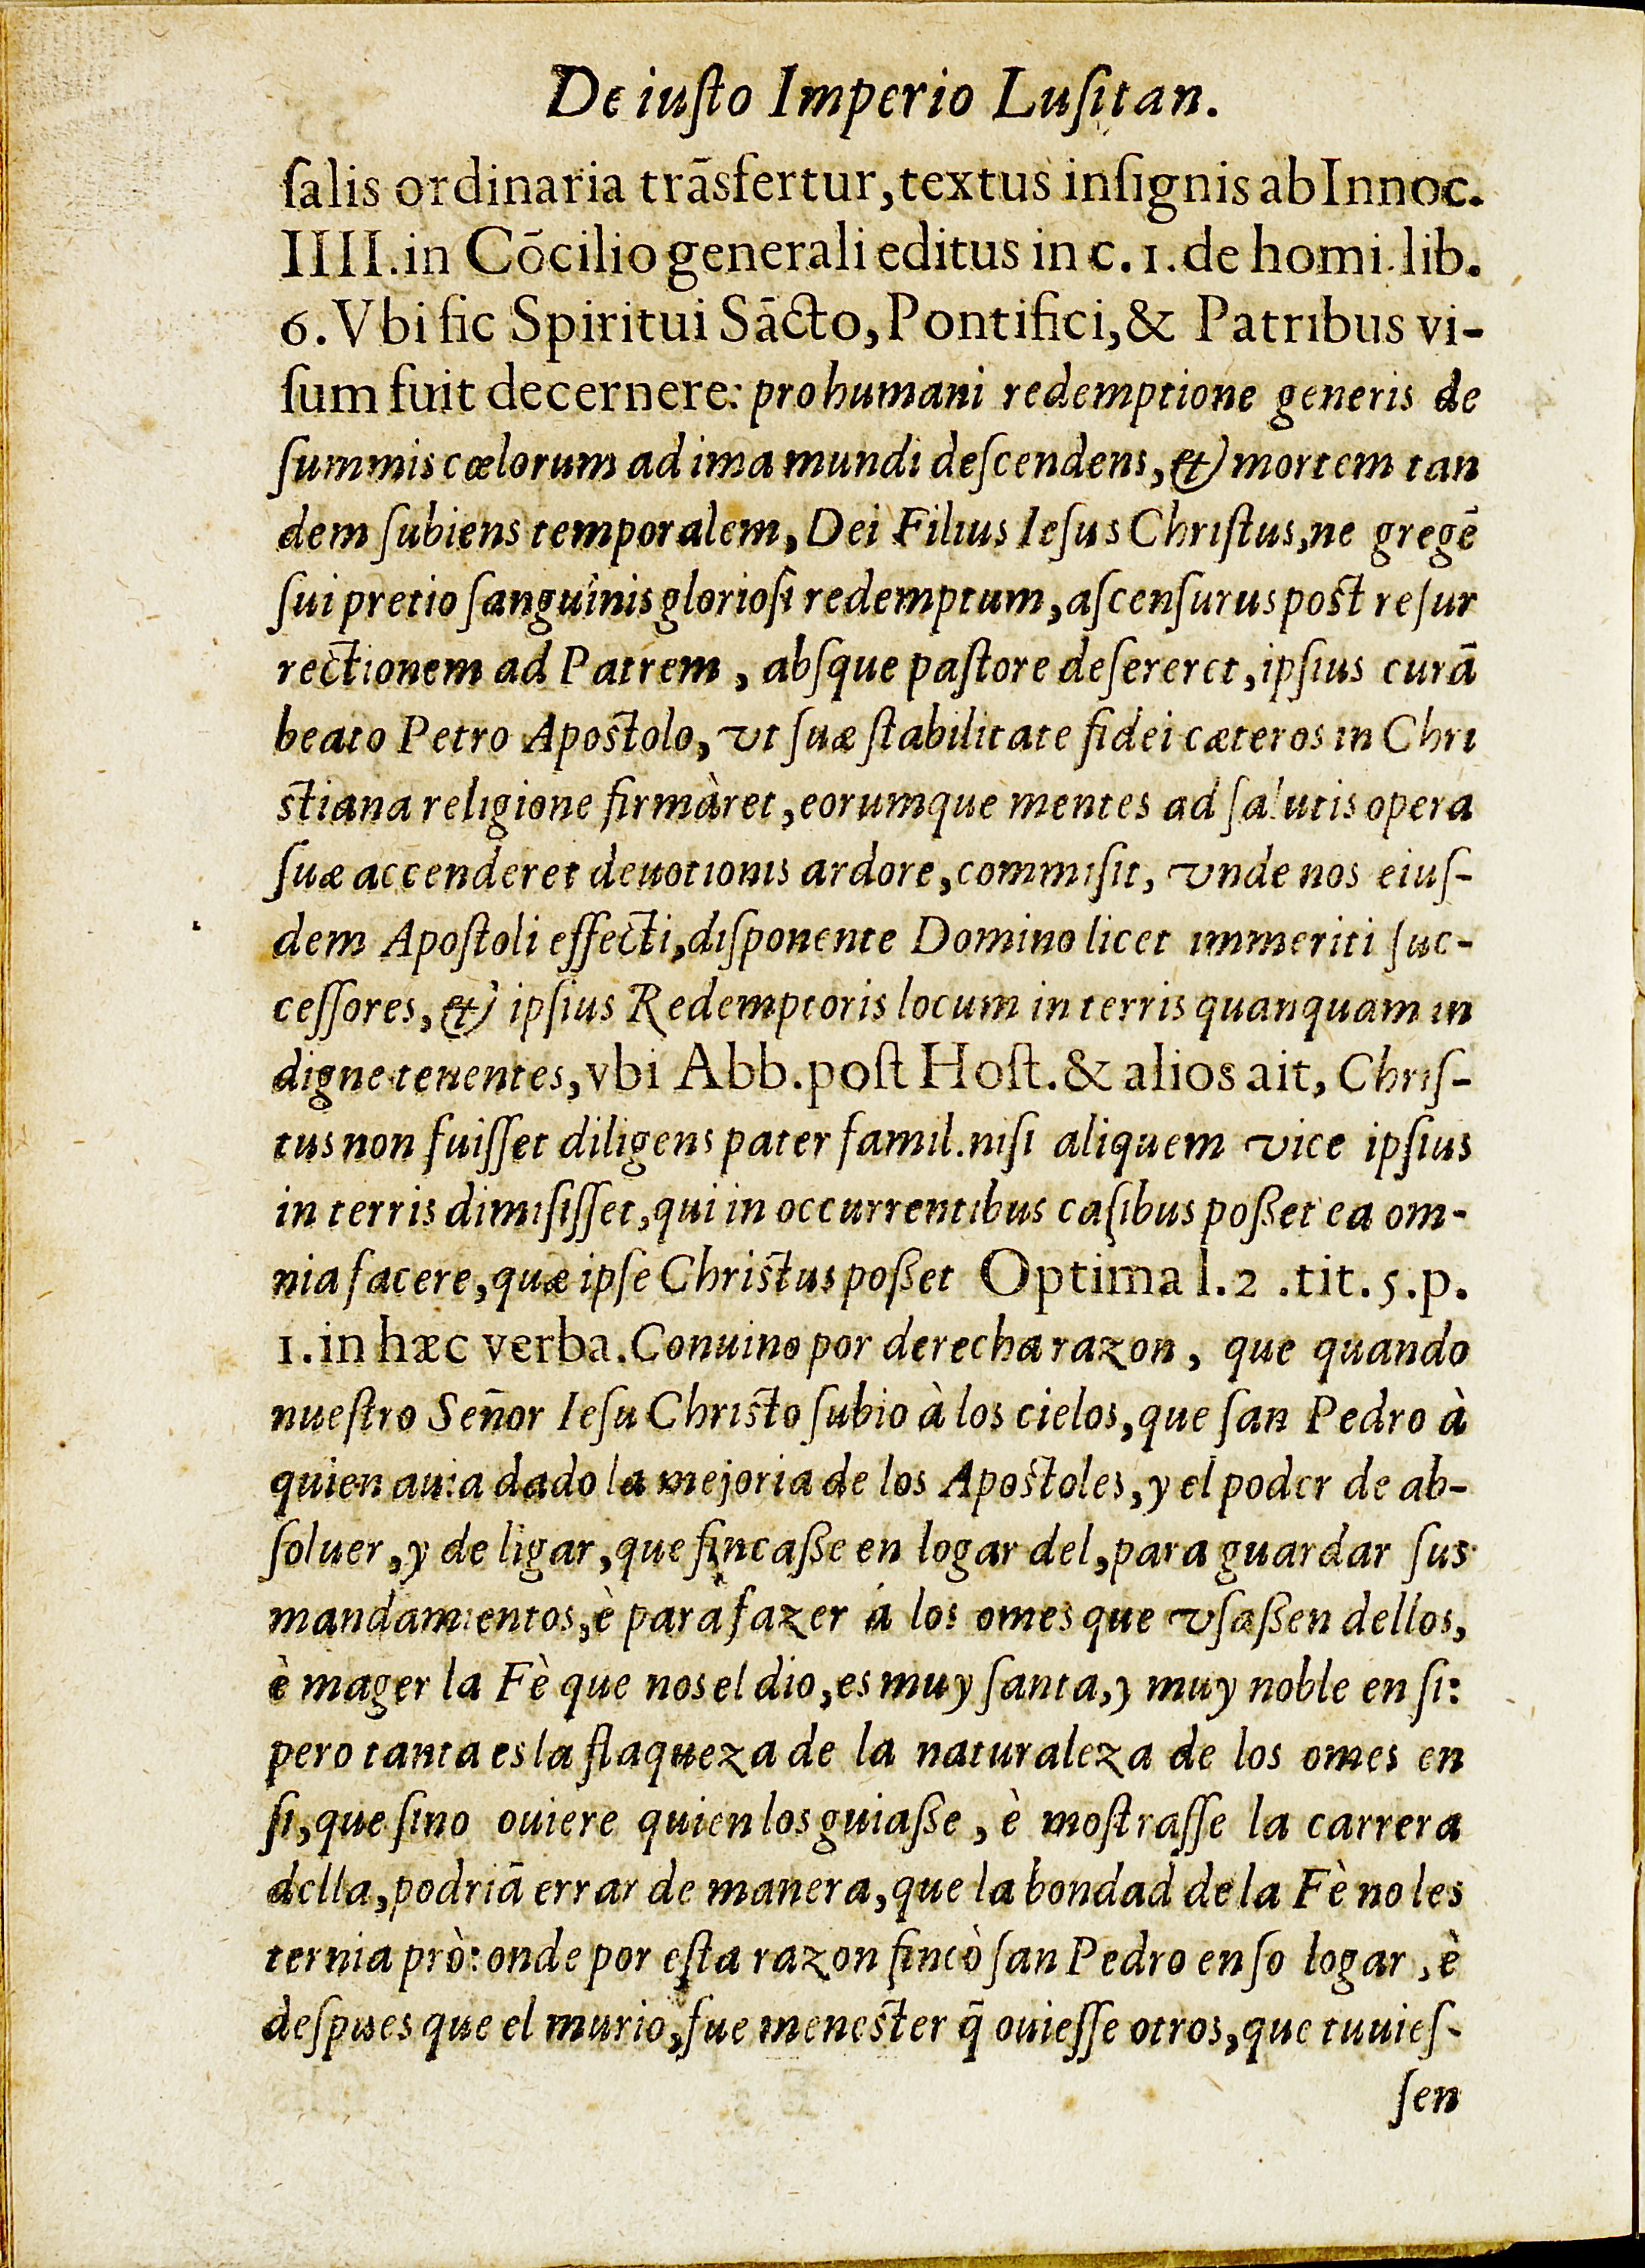 De iuſto Imperio Luſitan.
ſalis ordinaria trāsfertur, textus inſignis ab Innoc.
IIII. in Cōcilio generali editus in c. 1. de homi. lib.
6. Vbi ſic Spiritui Sācto, Pontifici, & Patribus vi-
ſum fuit decernere: pro humani redemptione generis de
ſummis cœlorum ad ima mundi deſcendens, & mortem tan
dem ſubiens temporalem, Dei Filius Ieſus Chriſtus, ne gregē
ſui pretio ſanguinis glorioſi redemptum, aſcenſurus poſt reſur
rectionem ad Patrem, abſque paſtore deſereret, ipſius curā
beato Petro Apoſtolo, vt ſuæ ſtabilitate fidei cæteros in Chri
ſtiana religione firmàret, eorumque mentes ad ſalutis opera
ſuæ accenderet deuotionis ardore, commiſit, vnde nos eiuſ-
dem Apoſtoli effecti, diſponente Domino licet immeriti ſuc-
ceſſores, & ipſius Redemptoris locum in terris quanquam in
digne tenentes, vbi Abb. poſt Hoſt. & alios ait, Chriſ-
tus non fuiſſet diligens pater famil. niſi aliquem vice ipſius
in terris dimiſiſſet, qui in occurrentibus caſibus poßet ea om-
nia facere, quæ ipſe Chriſtus poßet Optima l. 2. tit. 5. p.
1. in hæc verba. Conuino por derecha razon, que quando
nueſtro Señor Ieſu Chriſto ſubio à los cielos, que ſan Pedro à
quien auia dado la mejoria de los Apoſtoles, y el poder de ab-
ſoluer, y de ligar, que fincaßе en logar del, para guardar ſus
mandamientos, è para fazer á los omes que vſaßen dellos,
è mager la Fè que nos el dio, es muy ſanta, y muy noble en ſi:
pero tanta es la flaqueza de la naturaleza de los omes en
ſi, que ſino ouiere quien los guiaße, è moſtraſſe la carrera
della, podriā errar de manera, que la bondad de la Fè no les
ternia prò: onde por eſta razon fincò ſan Pedro en ſo logar, è
deſpues que el murio, fue meneſter q̄ ouieſſe otros, que tuuieſ-
ſen